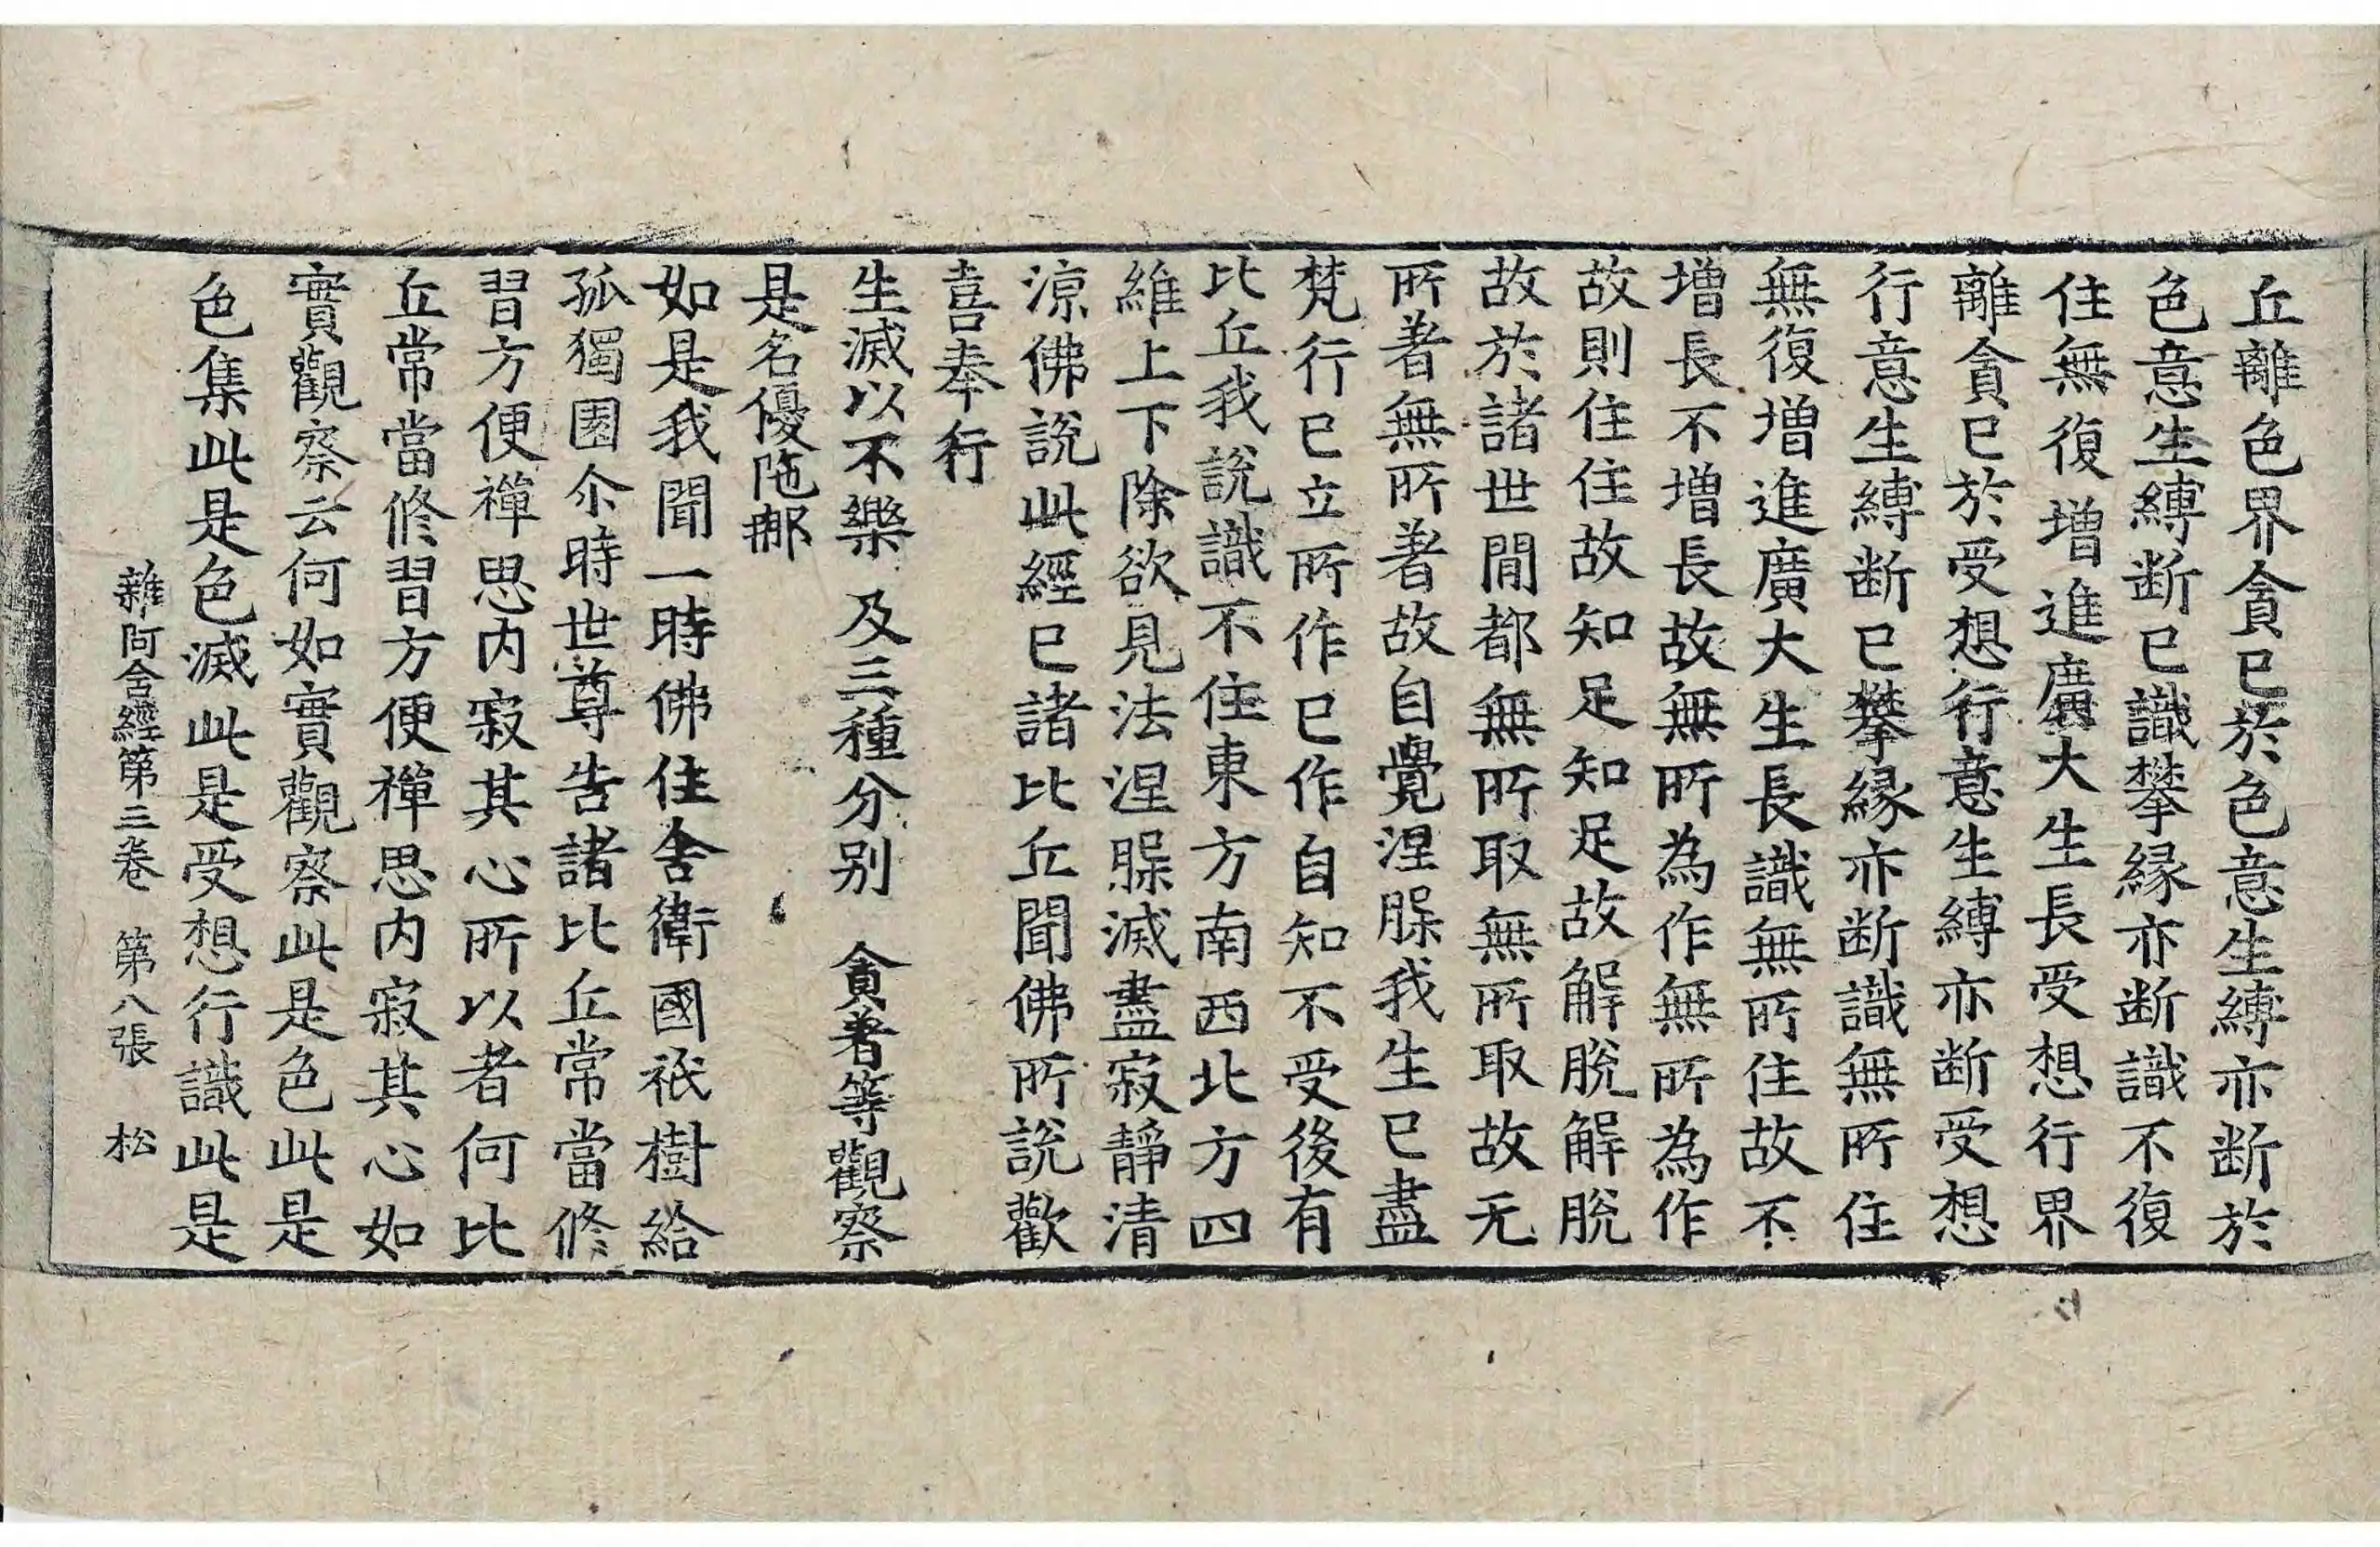 丘離色界貪已於色意生縛亦断於
色意生縛断已識攀緣亦断識不復
住無復增進廣大生長受想行界
離貪已於受想行意生縛亦断受想
行意生縛断已攀緣亦断識無所住
無復增進廣大生長識無所住故不
增長不增長故無所為作無所為作
故則住住故知足知足故解脫解脫
故於諸世間都無所取無所取故无
所著無所著故自覺涅槃我生已盡
梵行已立所作已作自知不受後有
比丘我說識不住東方南西北方四
維上下除欲見法涅槃滅盡寂靜清
涼佛說此經已諸比丘聞佛所說歡
喜奉行
生滅以不樂 及三種分別 貪著等觀察
是名優陁那
如是我聞一時佛住舍衛國祇樹給
孤獨園尒時世尊告諸比丘常當修
習方便禪思内寂其心所以者何比
丘常當修習方便禪思内寂其心如
實觀察云何如實觀察此是色此是
色集此是色滅此是受想行識此是
雜阿含經第三卷 第八張 松